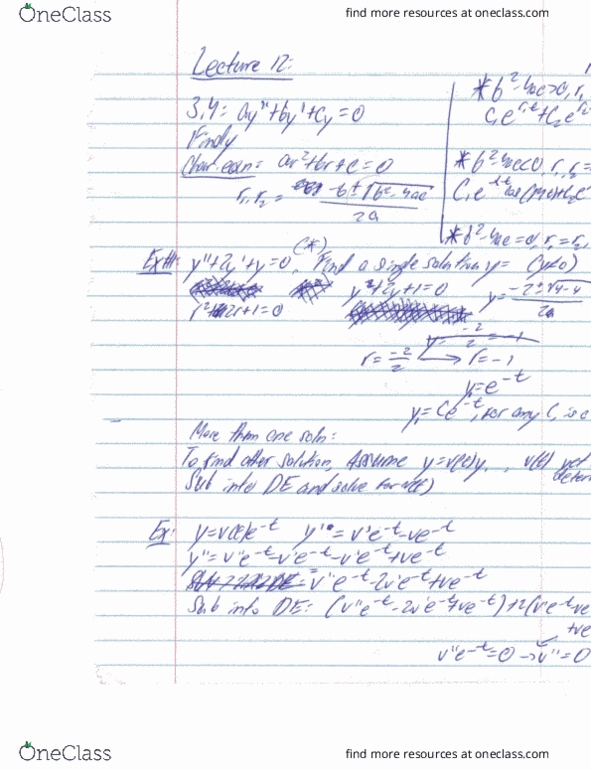 OneClass
find more resources at oneclass.com
Lecture 12:
3.4: ay"+by'+cy=0
Char. eqn: ar²+br+c=0
r₁, r₂ = -b±√b²-4ac
2a
* b²-4ac>0, r₁
C₁e^r₁t+C₂e^r₂
* b²-4ac<0, r₁, r₂=
* b²-4ac=0, r₁=r₂,
(*)
Ex#1: y"+2y'+y=0, Find a single solution y= (y≠0)
y²+2y+1=0
y= -2±√4-4
2a
r²+2r+1=0
r= -2/2 → r=-1
y₁=e^-t
y₁=Ce^-t, for any C, is a
More than one soln:
To find other solution, Assume y=v(t)y₁, v(t) yet
deter
Sub into DE and solve for v(t)
Ex: y=v(t)e^-t y'=v'e^-t-ve^-t
y"=v"e^-t-v'e^-t-v'e^-t+ve^-t
=v"e^-t-2v'e^-t+ve^-t
Sub into DE: (v"e^-t-2v'e^-t+ve^-t)+2(v'e^-t-ve
+ve
v"e^-t=0 → v"=0
OneClass
find more resources at oneclass.com